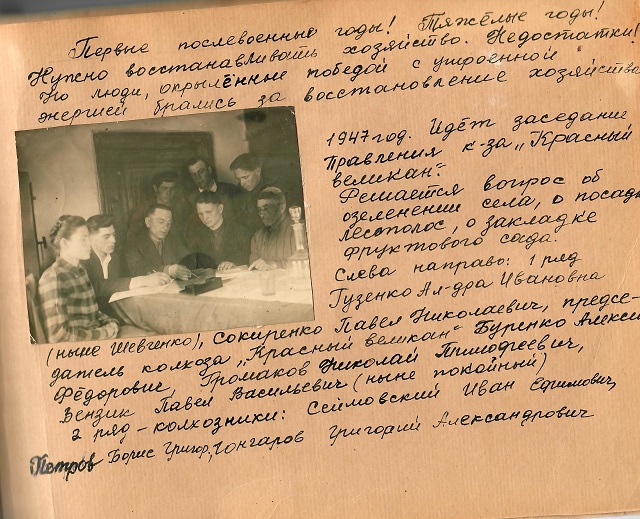 Первые послевоенные годы! Тяжёлые годы!
Нужно восстанавливать хозяйство. Недостатки!
Но люди, окрылённые победой с утроенной
энергией брались за восстановление хозяйства
1947 год. Идёт заседание
правления к-за „Красный
великан".
Решается вопрос об
озеленении села, о посадке
лесополос, о закладке
фруктового сада.
Слева направо: 1 ряд
Гузенко Ал-дра Ивановна
(ныне Шевченко), Сокиренко Павел Николаевич, предсе-
датель колхоза „Красный великан" Буренко Алексей
Фёдорович, Громаков Николай Тимофеевич,
Вензик Павел Васильевич (ныне покойный)
2 ряд - колхозники: Сеймовский Иван Ефимович,
Петров Борис Григор., Гонгаров Григорий Александрович